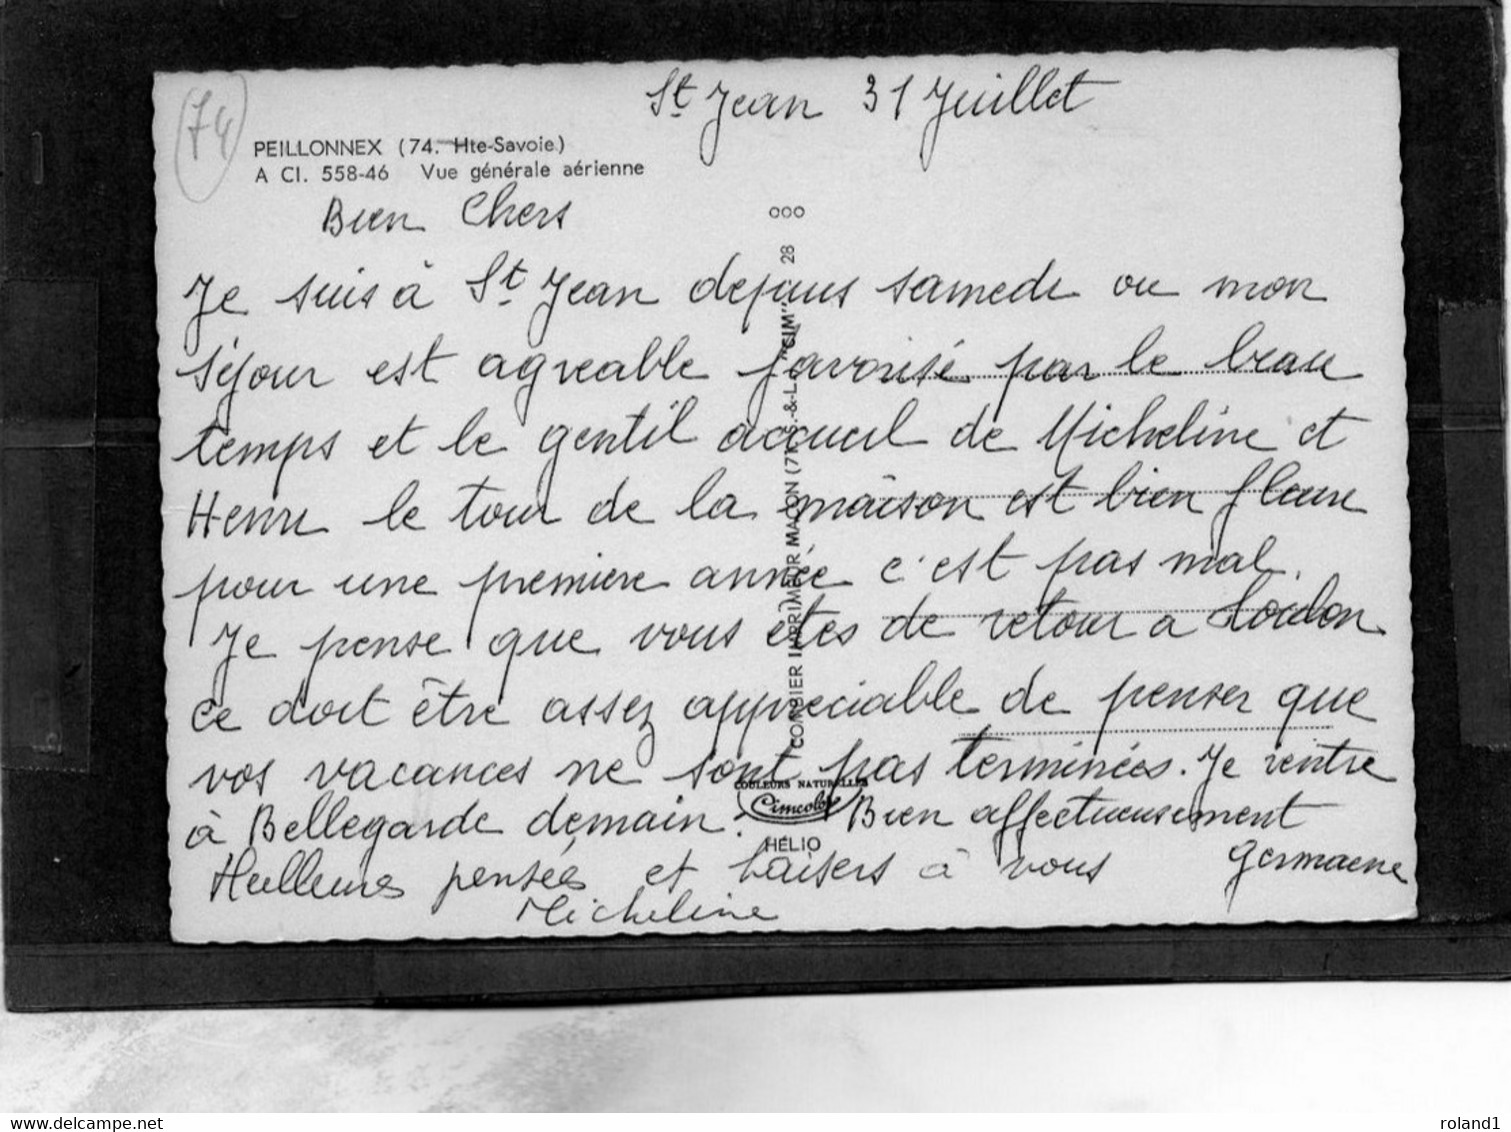 (74)
St Jean 31 Juillet
PEILLONNEX (74. Hte-Savoie)
A CI. 558-46 Vue générale aérienne
Bien Chers
Je suis à St Jean depuis samedi ou mon
séjour est agreable favorisé par le beau
temps et le gentil accueil de Micheline et
Henri le tour de la maison est bien fleuri
pour une premiere année c'est pas mal.
Je pense que vous êtes de retour a Toulon
ce doit être assez appreciable de penser que
vos vacances ne sont pas terminées. Je rentre
à Bellegarde demain. Bien affectueusement
Germaine
Meilleures pensées et baisers à vous
Micheline
000
COMBIER IMPRIMEUR MACON (71. S.-&-L.) "CIM" 28
COULEURS NATURELLES
Cimcolor
HÉLIO
delcampe.net
roland1